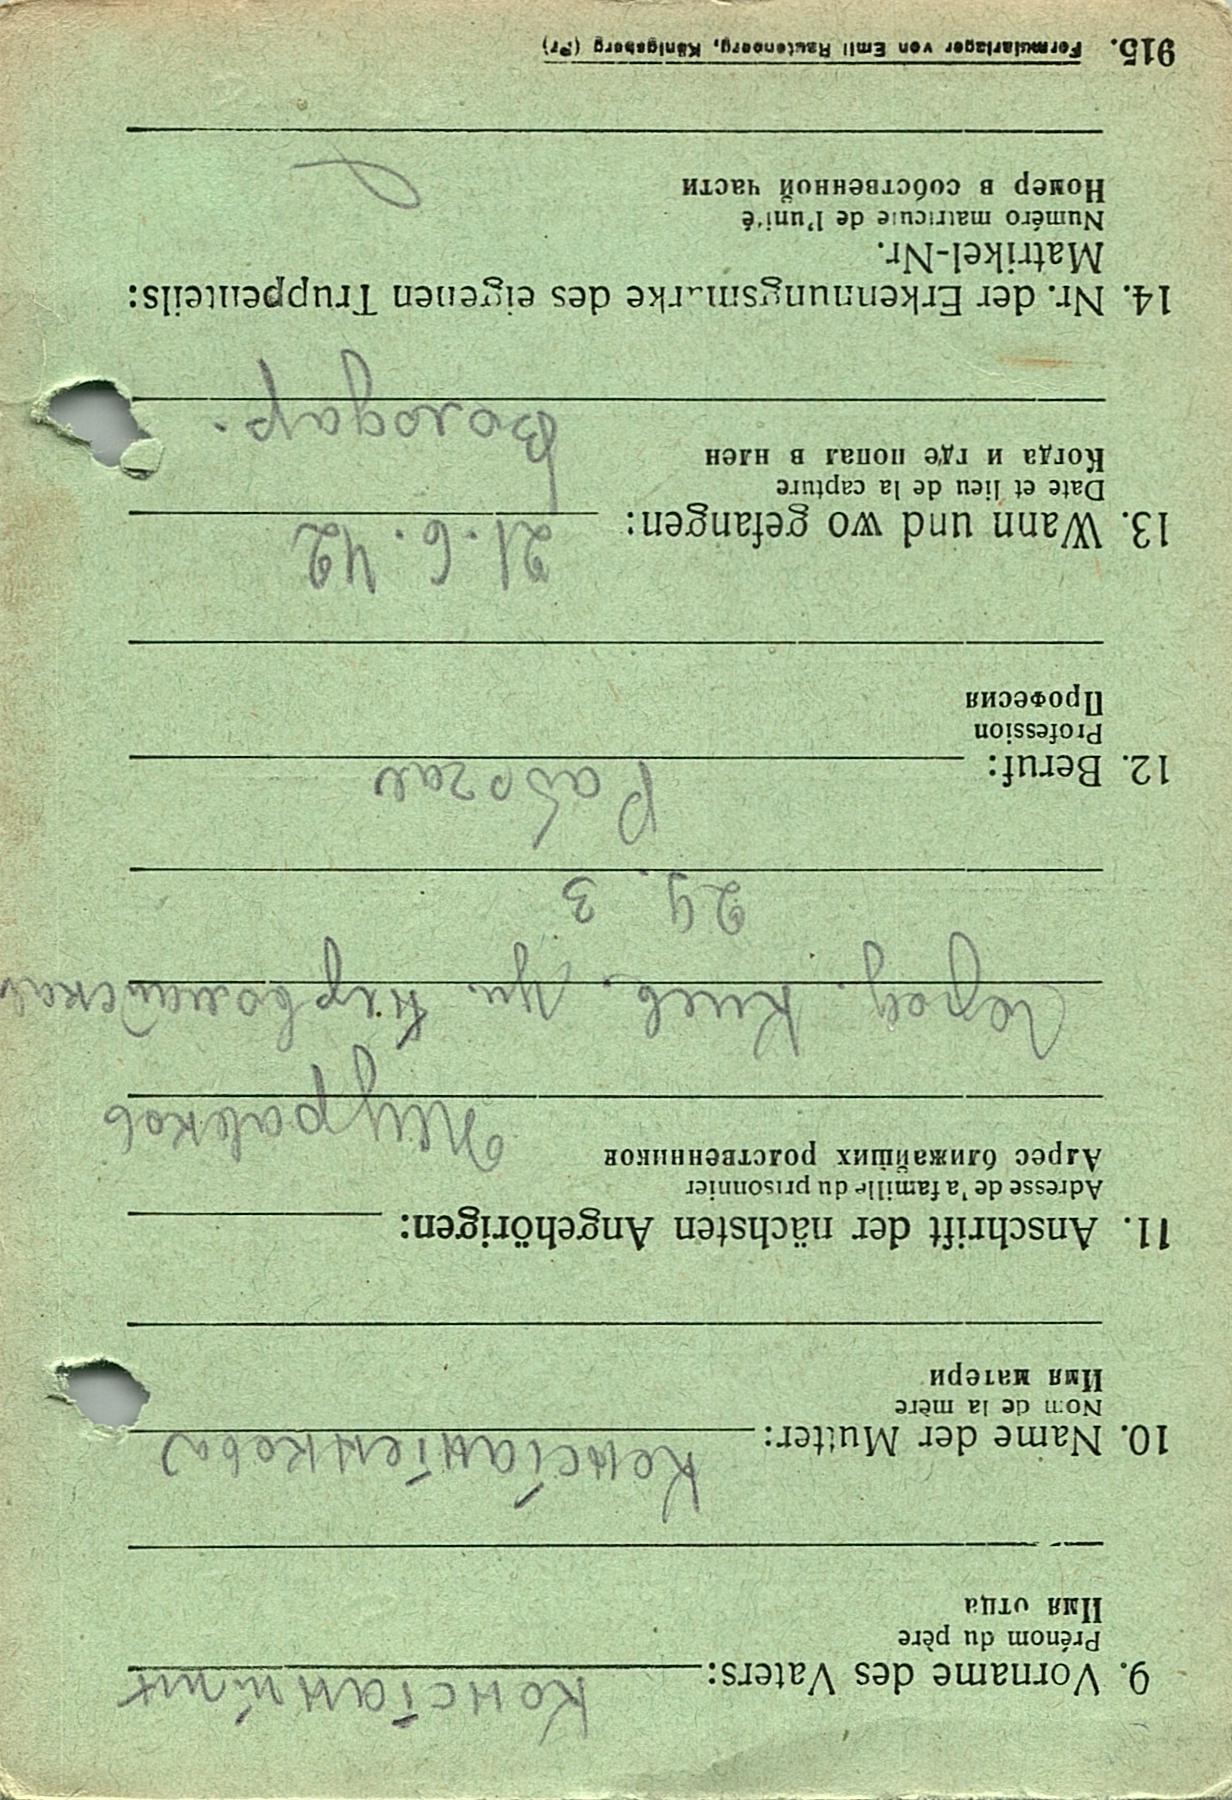 9. Vorname des Vaters: Константин
Prénom du père
Имя отца
10. Name der Mutter:
Nom de la mère
Имя матери
11. Anschrift der nächsten Angehörigen:
Adresse de la famille du prisonnier
Адрес ближайших родственников
Город. Киев. ул. Первомайская
29. 3
12. Beruf:
Profession
Професия
13. Wann und wo gefangen: 21. 6. 42
Date et lieu de la capture
Когда и где попал в плен
Володар.
14. Nr. der Erkennungsmarke des eigenen Truppenteils:
Matrikel-Nr.
Numéro matricule de l'unité
Номер в собственной части
915. Formularlager von Emil Rautenberg, Königsberg (Pr)